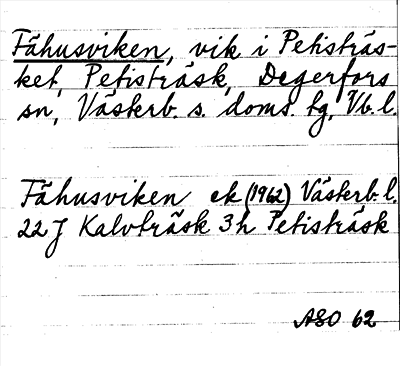 Fähusviken, vik i Petisträs-
ket, Petisträsk, Degerfors
sn, Västerb. s. doms. tg, Vb. l.
Fähusviken ek (1962) Västerb. l.
22 J Kalvträsk 3 h Petisträsk
ASO 62